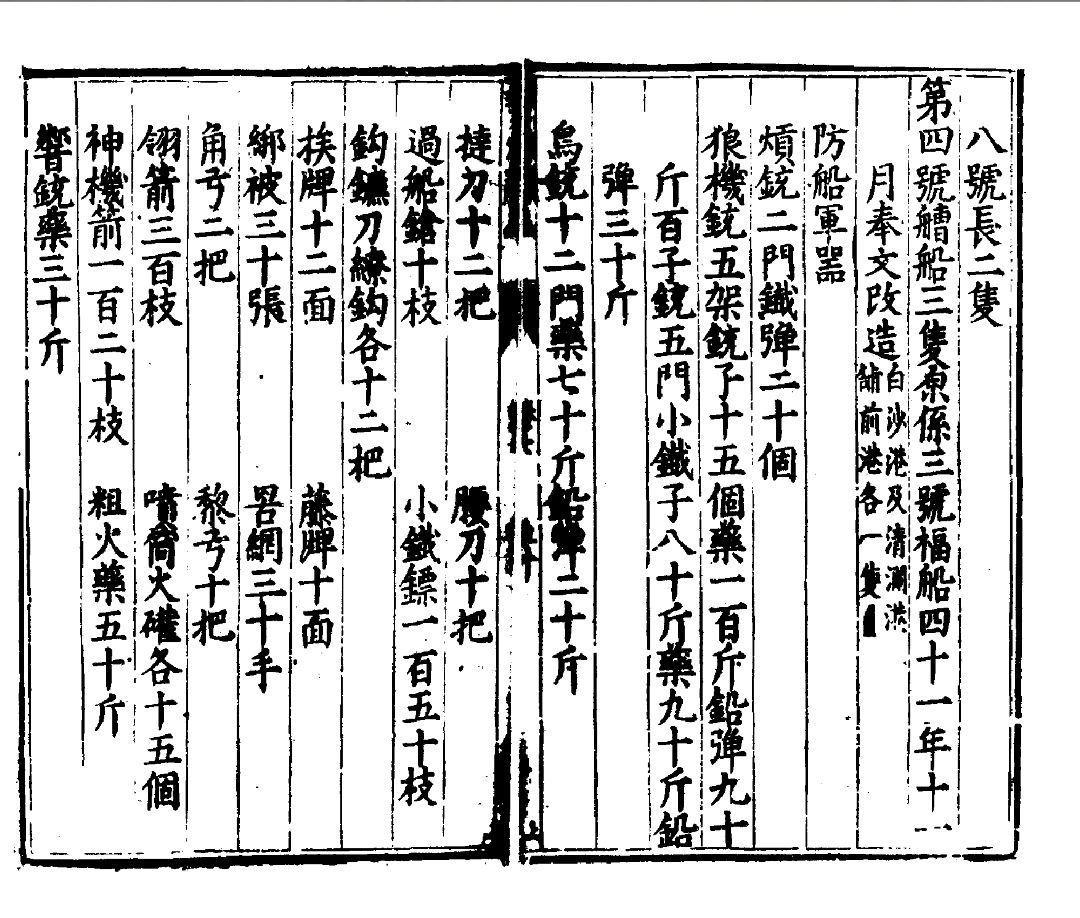 八號長二隻
第四號艚船三隻原係三號福船四十一年十一
月奉文改造白沙港及清瀾港
前港各一隻
防船軍器
熕銃二門鐵彈二十個
狼機銃五架銃子十五個藥一百斤鉛彈九十
斤百子銃五門小鐵子八十斤藥九十斤鉛
彈三十斤
鳥銃十二門藥七十斤鉛彈二十斤
撻刀十二把 腰刀十把
過船鎗十枝 小鐵鏢一百五十枝
鈎鐮刀繚鈎各十二把
挨牌十二面 藤牌十面
綁被三十張 罟網三十手
角弓二把 黎弓十把
翎箭三百枝 噴筩火礶各十五個
神機箭一百二十枝 粗火藥五十斤
響銃藥三十斤